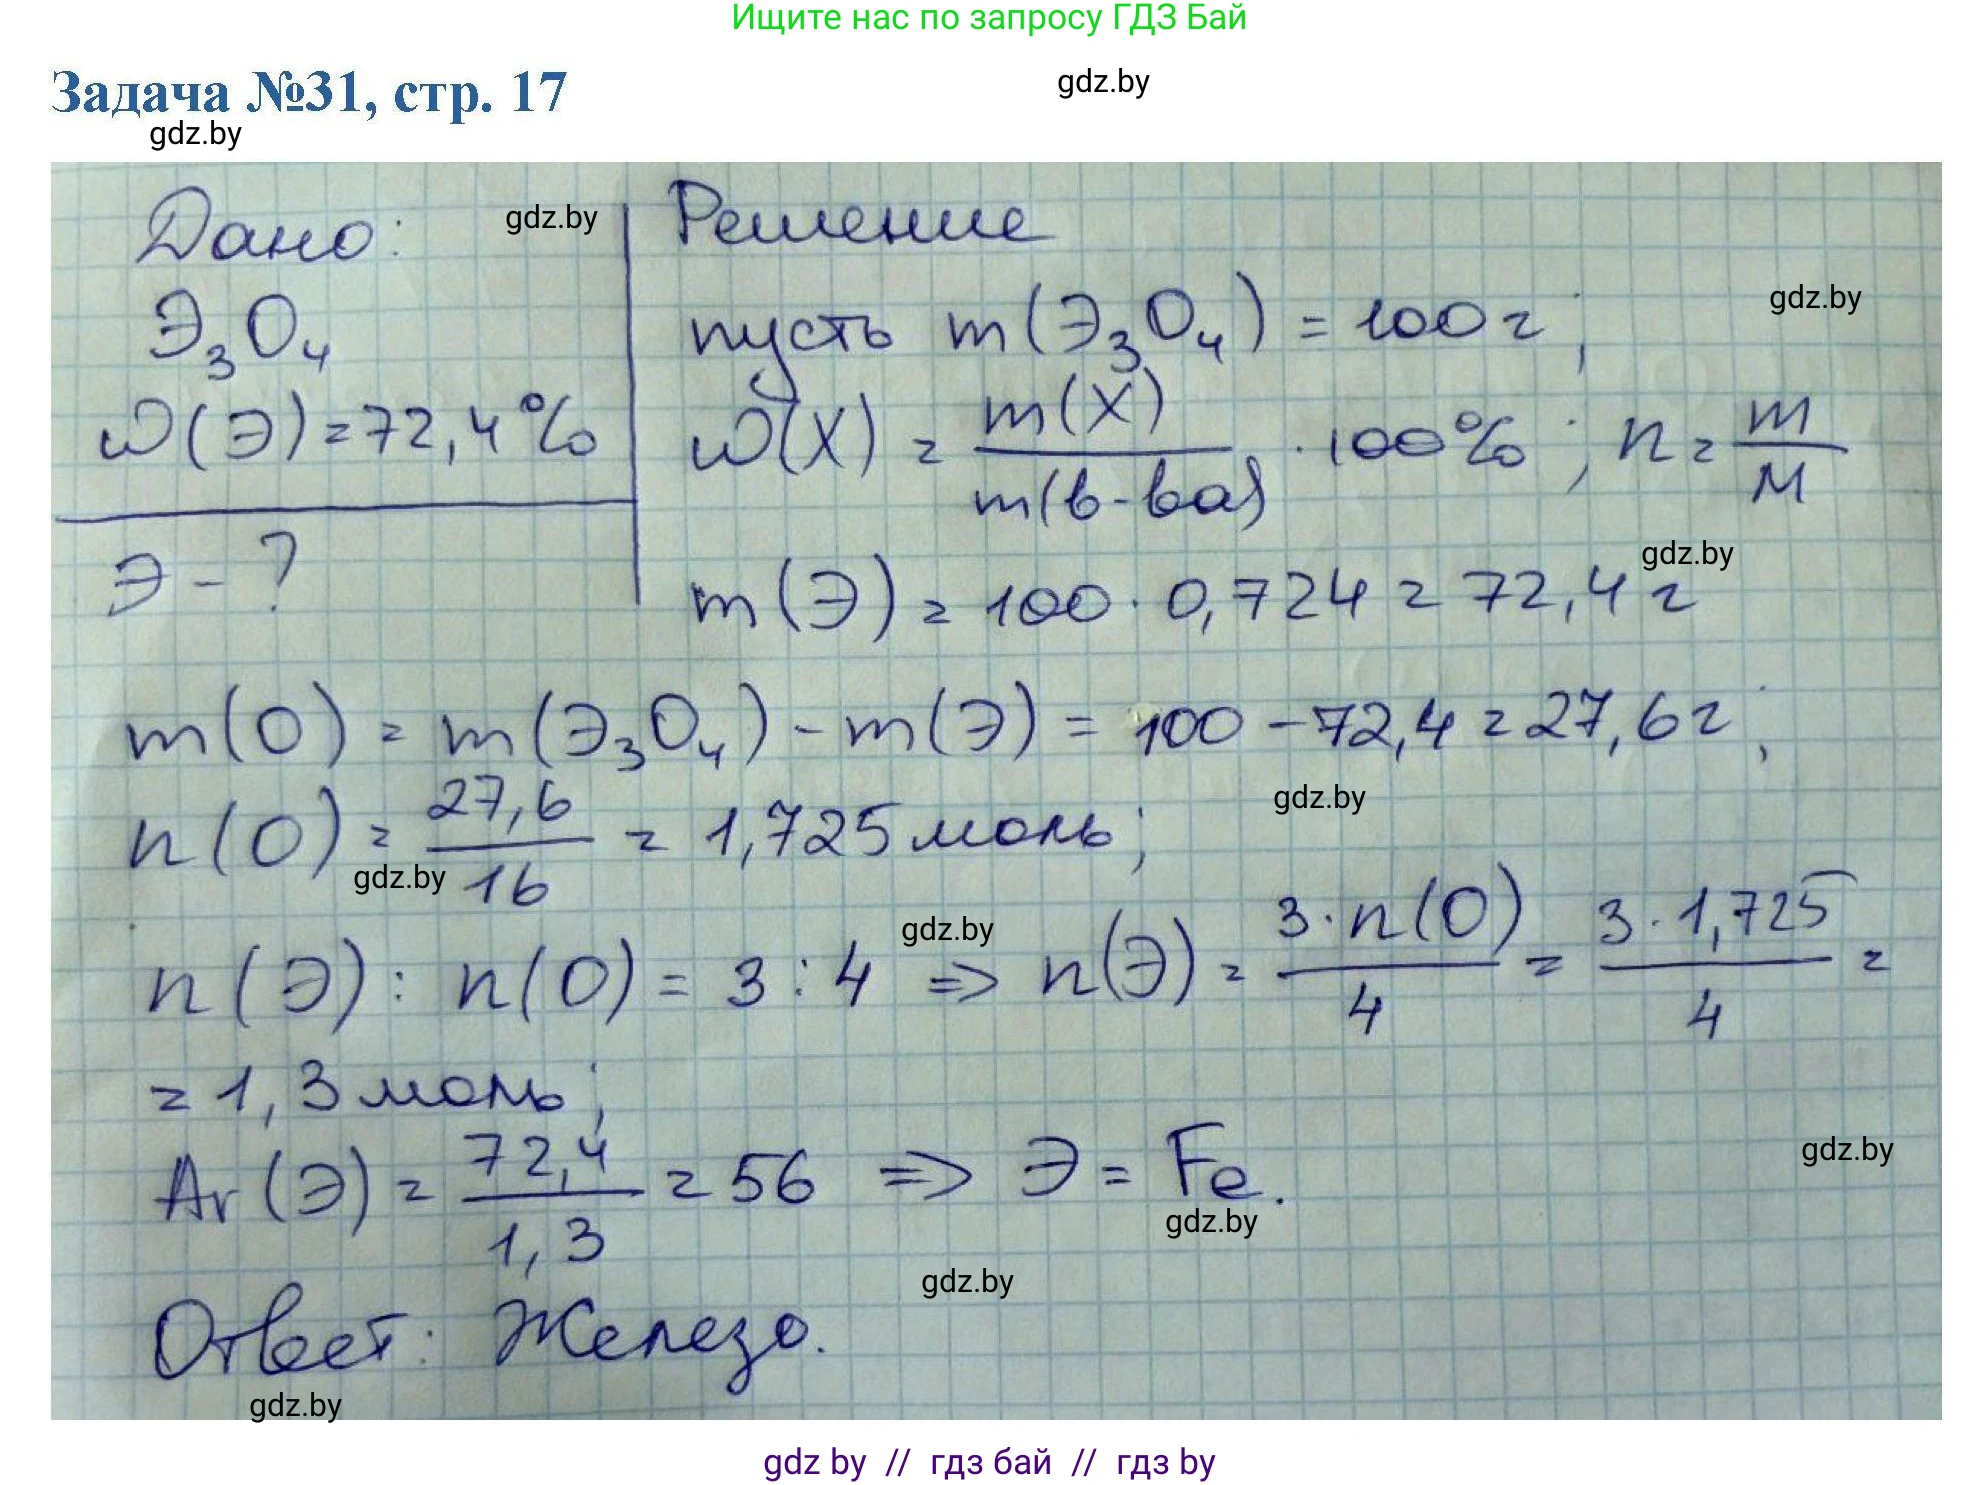 Ищите нас по запросу ГДЗ Бай
gdz.by
Задача №31, стр. 17
gdz.by
Дано:
Э₃O₄
ω(Э) = 72,4%
Э - ?
gdz.by
Решение
пусть m(Э₃O₄) = 100 г;
gdz.by
ω(X) = m(X) / m(в-ва) · 100%; n = m / M
gdz.by
m(Э) = 100 · 0,724 = 72,4 г
m(O) = m(Э₃O₄) - m(Э) = 100 - 72,4 = 27,6 г;
gdz.by
n(O) = 27,6 / 16 = 1,725 моль;
gdz.by
gdz.by
n(Э) : n(O) = 3 : 4 => n(Э) = 3 · n(O) / 4 = 3 · 1,725 / 4 =
= 1,3 моль;
Ar(Э) = 72,4 / 1,3 = 56 => Э = Fe.
gdz.by
gdz.by
gdz.by
Ответ: Железо.
gdz.by
gdz by // гдз бай // гдз by